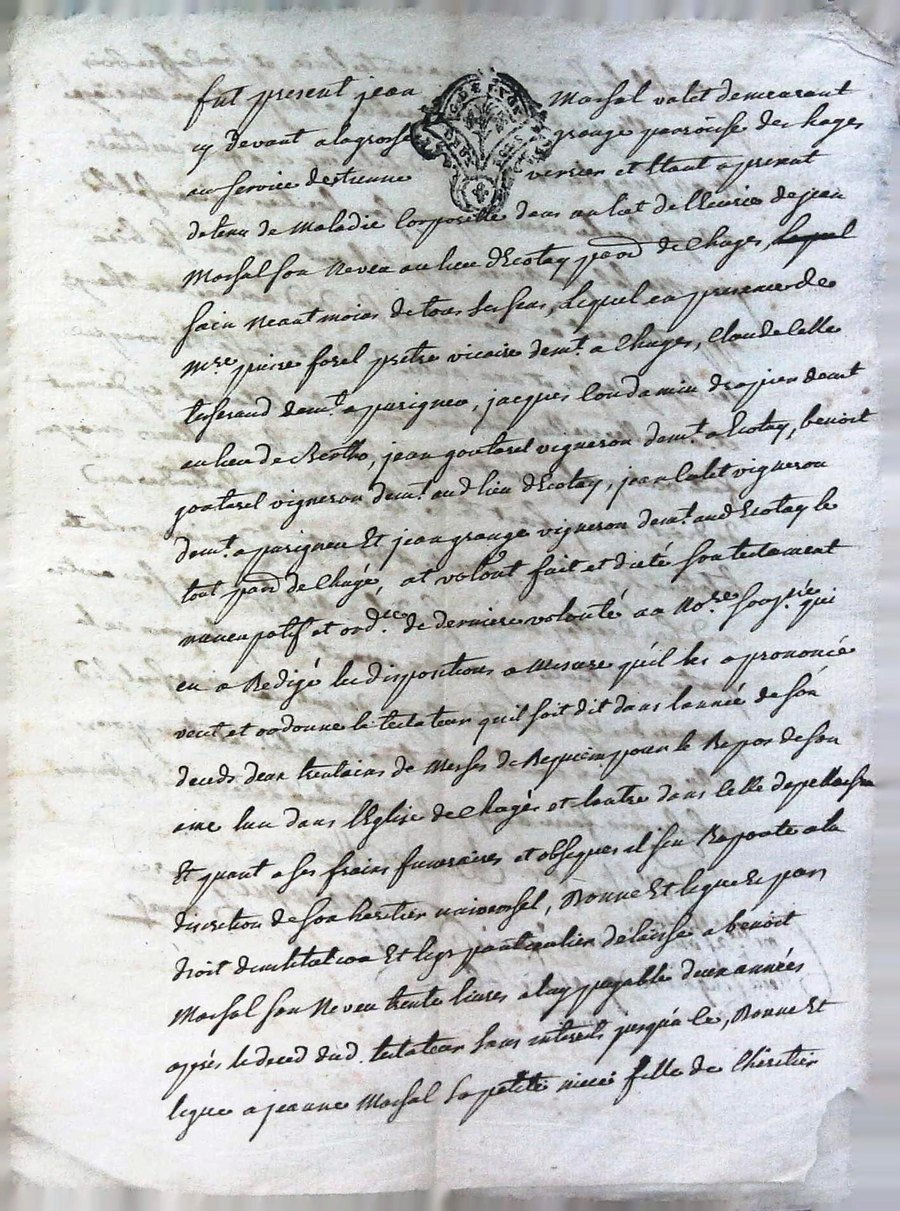 fut present jean Massal valet demeurant
cy devant a lagrosse grange paroisse de chages
au service destienne versien et Etant a present
detenu de Maladie Corporelle dans un lict de l'Ecurie de jean
Massal son Neveu au lieu d'Ecotay parr de Chages,
sain neantmoins de tous ses sens, lequel en presence de
Mre pierre forel prêtre vicaire demt a Chages, Claude Celle
tisserand demt a parigneu, jacques Condamin drapier demt
au lieu de Bertho, jean goutarel vigneron demt a Ecotay, benoit
goutarel vigneron demt aud lieu d'Ecotay, jean Calet vigneron
demt a parigneu Et jean grange vigneron demt aud Ecotay le
tout parr de Chagé, at volont fait et dicté son testament
nuncupatif et ordce de derniere volonté a a Nore sousne qui
en a Redigé les dispositions a Mesure qu'il les a prononcé
veut et ordonne le testateur quil soit dit dans lannée de son
deceds deux trentains de Messes de Requiem pour le Repos de son
ame lun dans l'Eglise de Chagés et lautre dans Celle de
Et quant a ses fraix funeraires et obseques il sen Raporte a la
discrétion de son heritier universel, Donne Et legue Et par
droit dinstitution Et legs particulier delaisse a benoit
Massal son Neveu trente livres a luy payable deux années
apprés le deced dud. testateur sans interets jusqu'a ce, Donne Et
legue a jeanne Massal sa petite niece fille de l'heritier